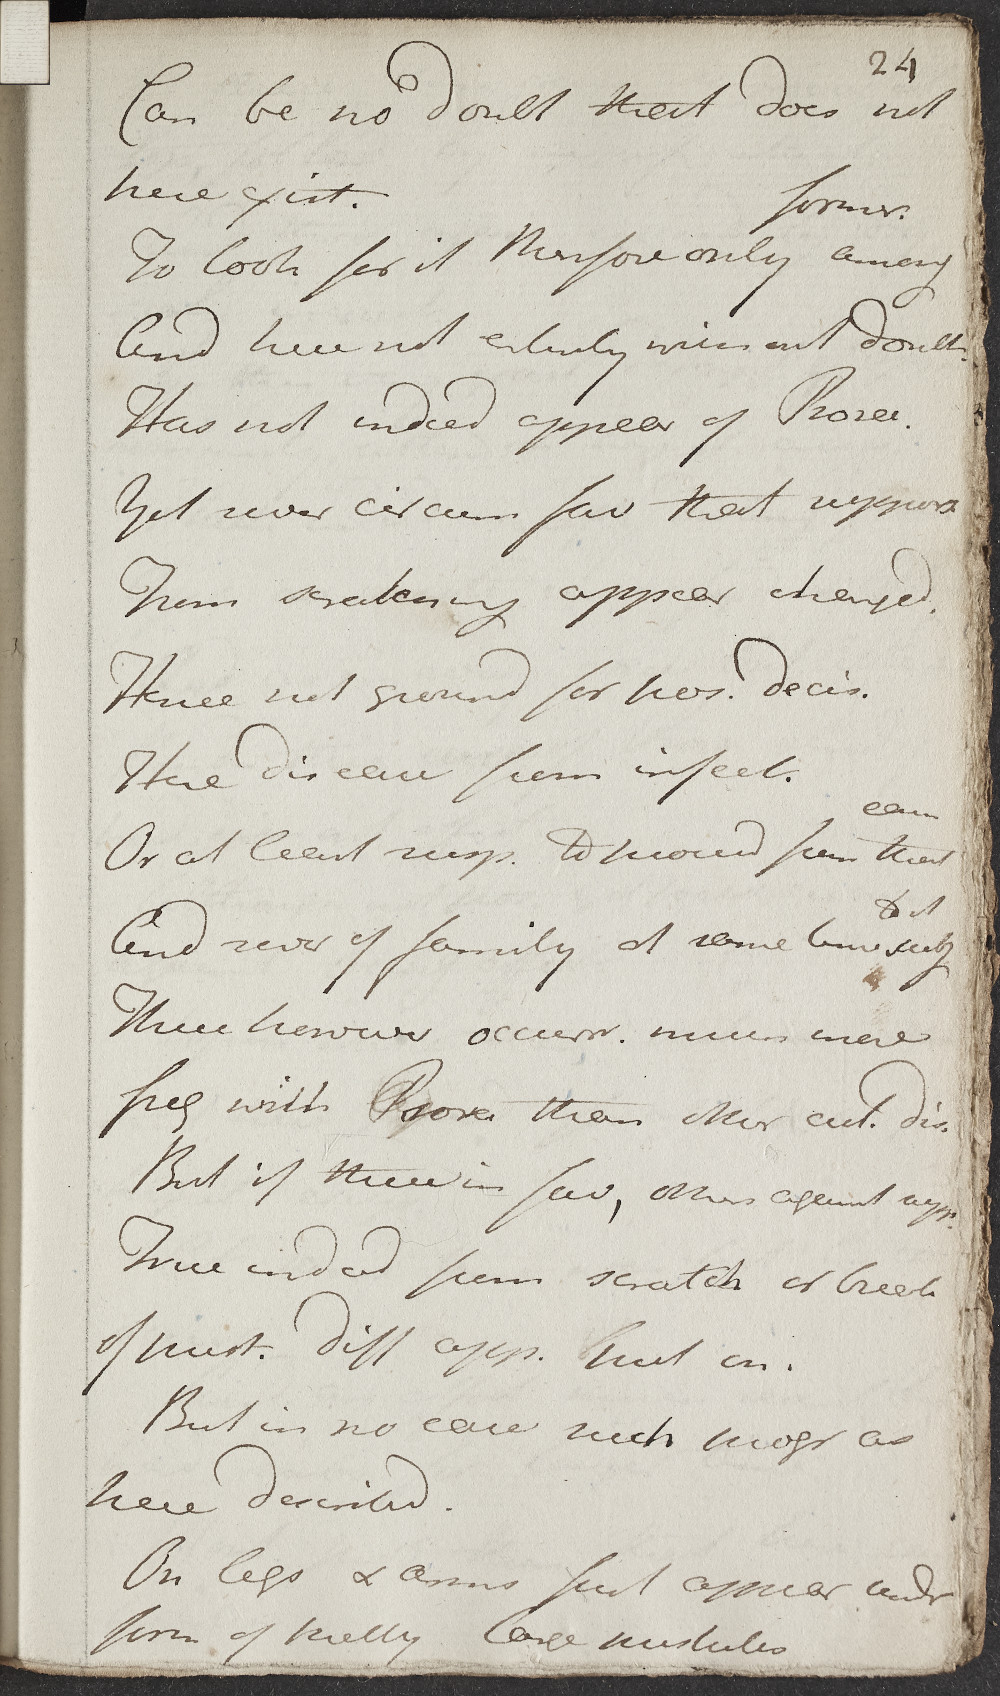 24
Can be no doubt that does not
here exist.
former.
To look for it therefore only among
And here not entirely without doubt.
Has not indeed appear of Psora.
Yet sever circum fav that suppos
From scratching appear changed.
Hence not ground for pos. decis.
Here disease from infect.
Or at least susp. to proceed from that
cause
And sever of family at same time subj
to it
These however occurr. much more
freq with Psora than other cut. dis.
But if these in fav, others against supp.
True indeed from scratch or break
of pust. diff app. put on.
But in no case such progr as
here described.
On legs & arms first appear under
form of pretty large pustules